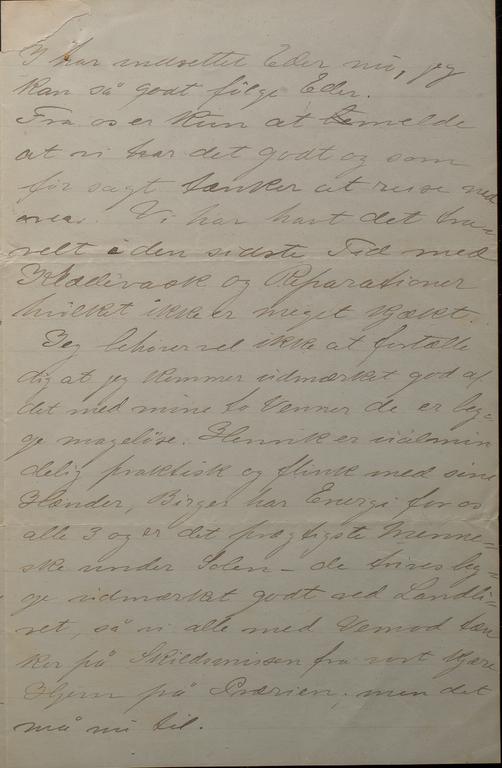 I har indrettet Eder nu, jeg
kan så godt følge Eder.
Fra os er kun at bemelde
at vi har det godt og som
før sagt tænker at reise ned
over. Vi har havt det tra-
velt i den sidste Tid med
Klædevask og Reparationer
hvilket ikke er meget kjækt.
Jeg behøver vel ikke at fortælle
dig at jeg kommer udmærket god af
det med mine to Venner de er beg-
ge mageløse. Henrik er ualmin
delig praktisk og flink med sine
Hænder, Birger har Energi for os
alle 3 og er det prægtigste Menne-
ske under Solen – de trives beg-
ge udmærket godt ved Landli-
vet, så vi alle med Vemod tæn
ker på Skilsmissen fra vort kjære
Hjem på Prærien, men det
må nu til.